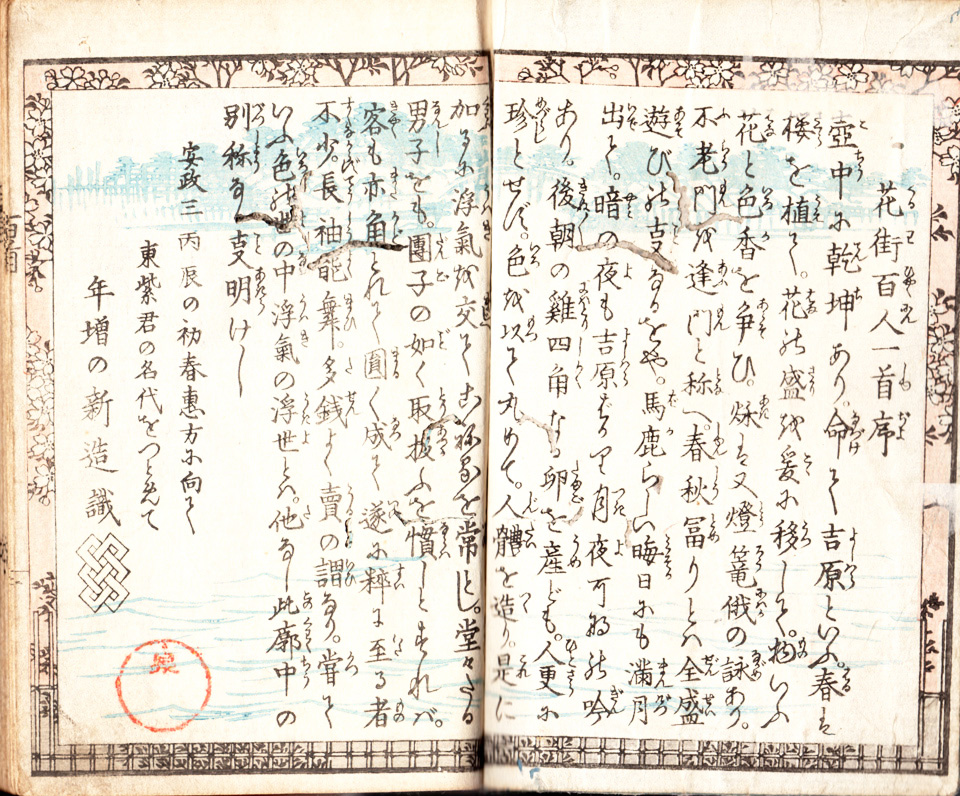 花街百人一首序
壺中に乾坤あり。命て吉原といふ。春は
桜を植て。花の盛を爰に移して。物いふ
花と色香を争ひ。秌は又燈篭俄の詠あり。
不老門を逢門と称へ。春秋冨りとハ全盛
遊びの支なるをや。馬鹿らしい晦日にも満月
出て。暗の夜も吉原はかり月夜可那の吟
あり。後朝の雞四角な卵を産ども。人更に
珍とせず。色を以て丸めて。人體を造り。是に
加るに浮氣を交てこねるを常とし。堂々たる
男子をも。團子の如く取扱ふを慣しとすれバ。
客も亦角とれて圓く成て遂に粹に至る者
不少。長袖能舞。多銭よく賣の謂なり。嘗て
いふ色の世の中浮氣の浮世とハ。他なし此廓中の
別称なる支明けし
安政三丙辰の初春恵方に向て
東紫君の名代をつとめて
年増の新造識